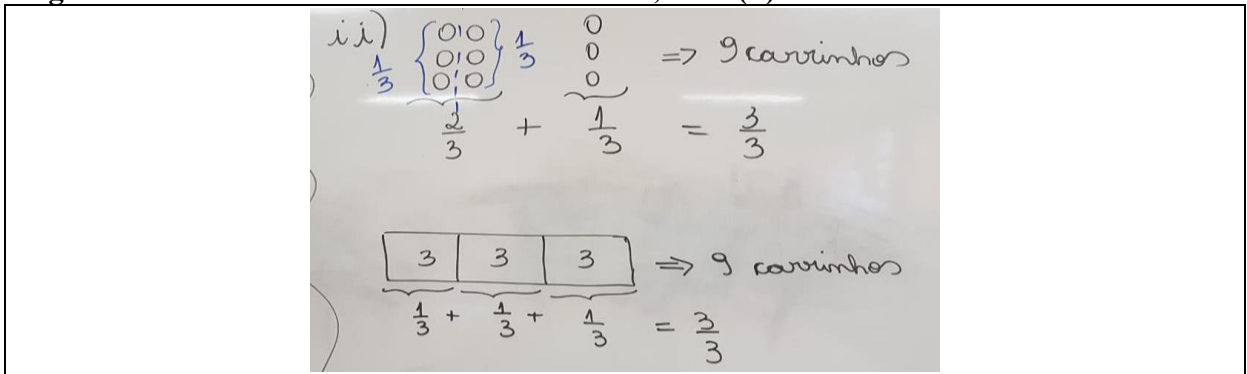 ii) 1/3 {0¦0 0¦0 0¦0} 1/3 0 0 0 => 9 carrinhos
2/3 + 1/3 = 3/3
3 3 3 => 9 carrinhos
1/3 + 1/3 + 1/3 = 3/3